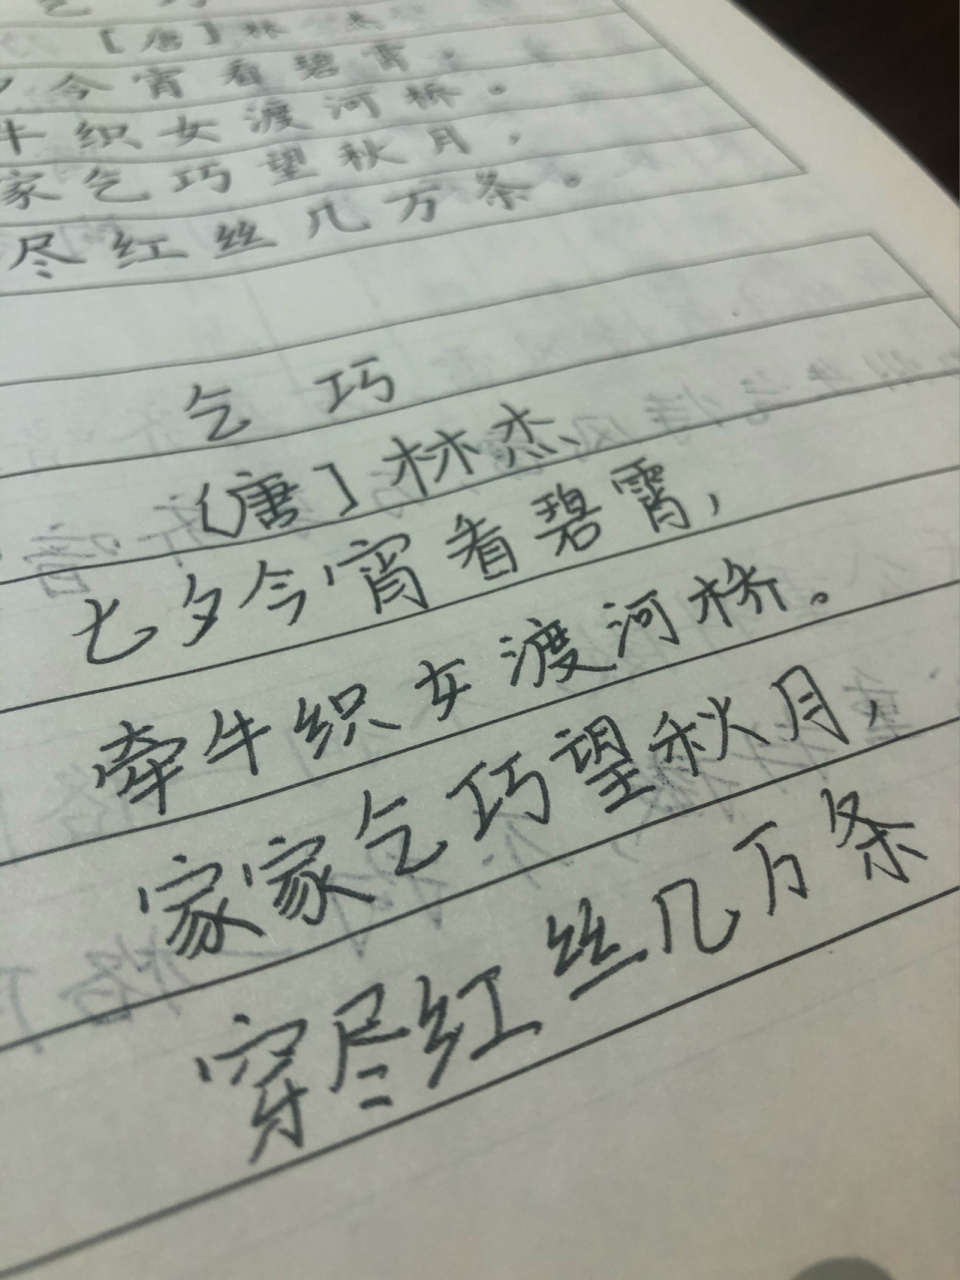 乞巧
[唐]林杰
夕今宵看碧霄。
牛织女渡河桥。
家乞巧望秋月，
尽红丝几万条。
乞巧
[唐]林杰
七夕今宵看碧霄，
牵牛织女渡河桥。
家家乞巧望秋月，
穿尽红丝几万条